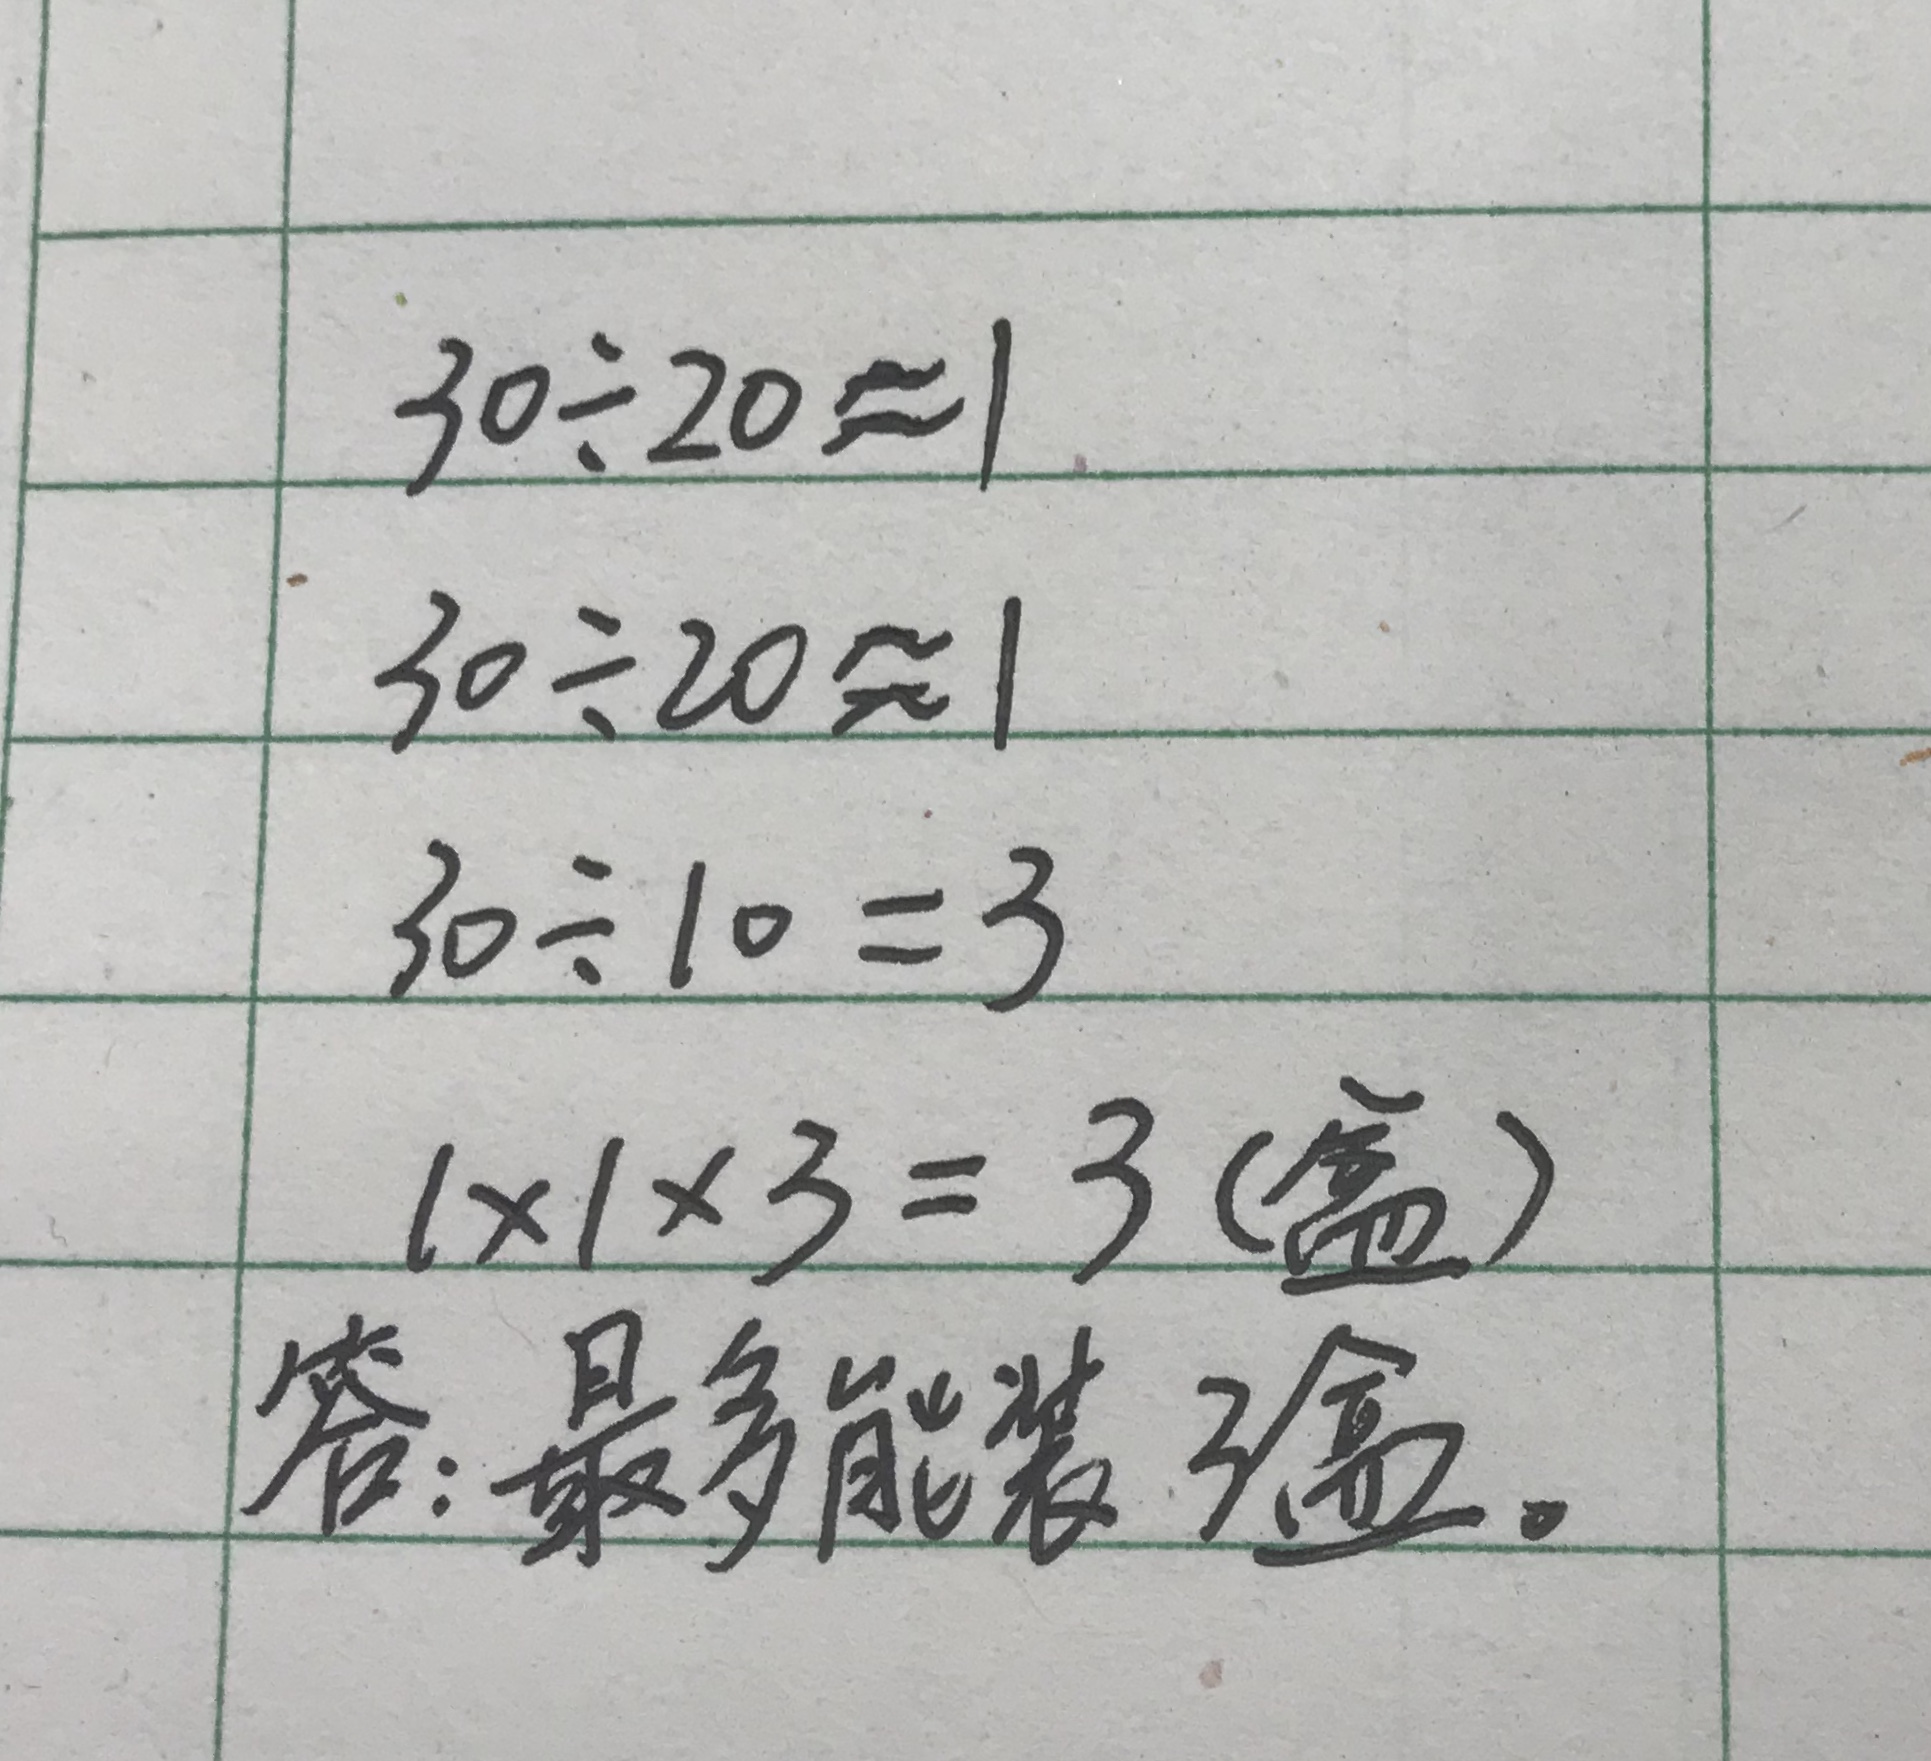 30÷20≈1
30÷20≈1
30÷10=3
1×1×3=3(盒)
答:最多能装3盒。